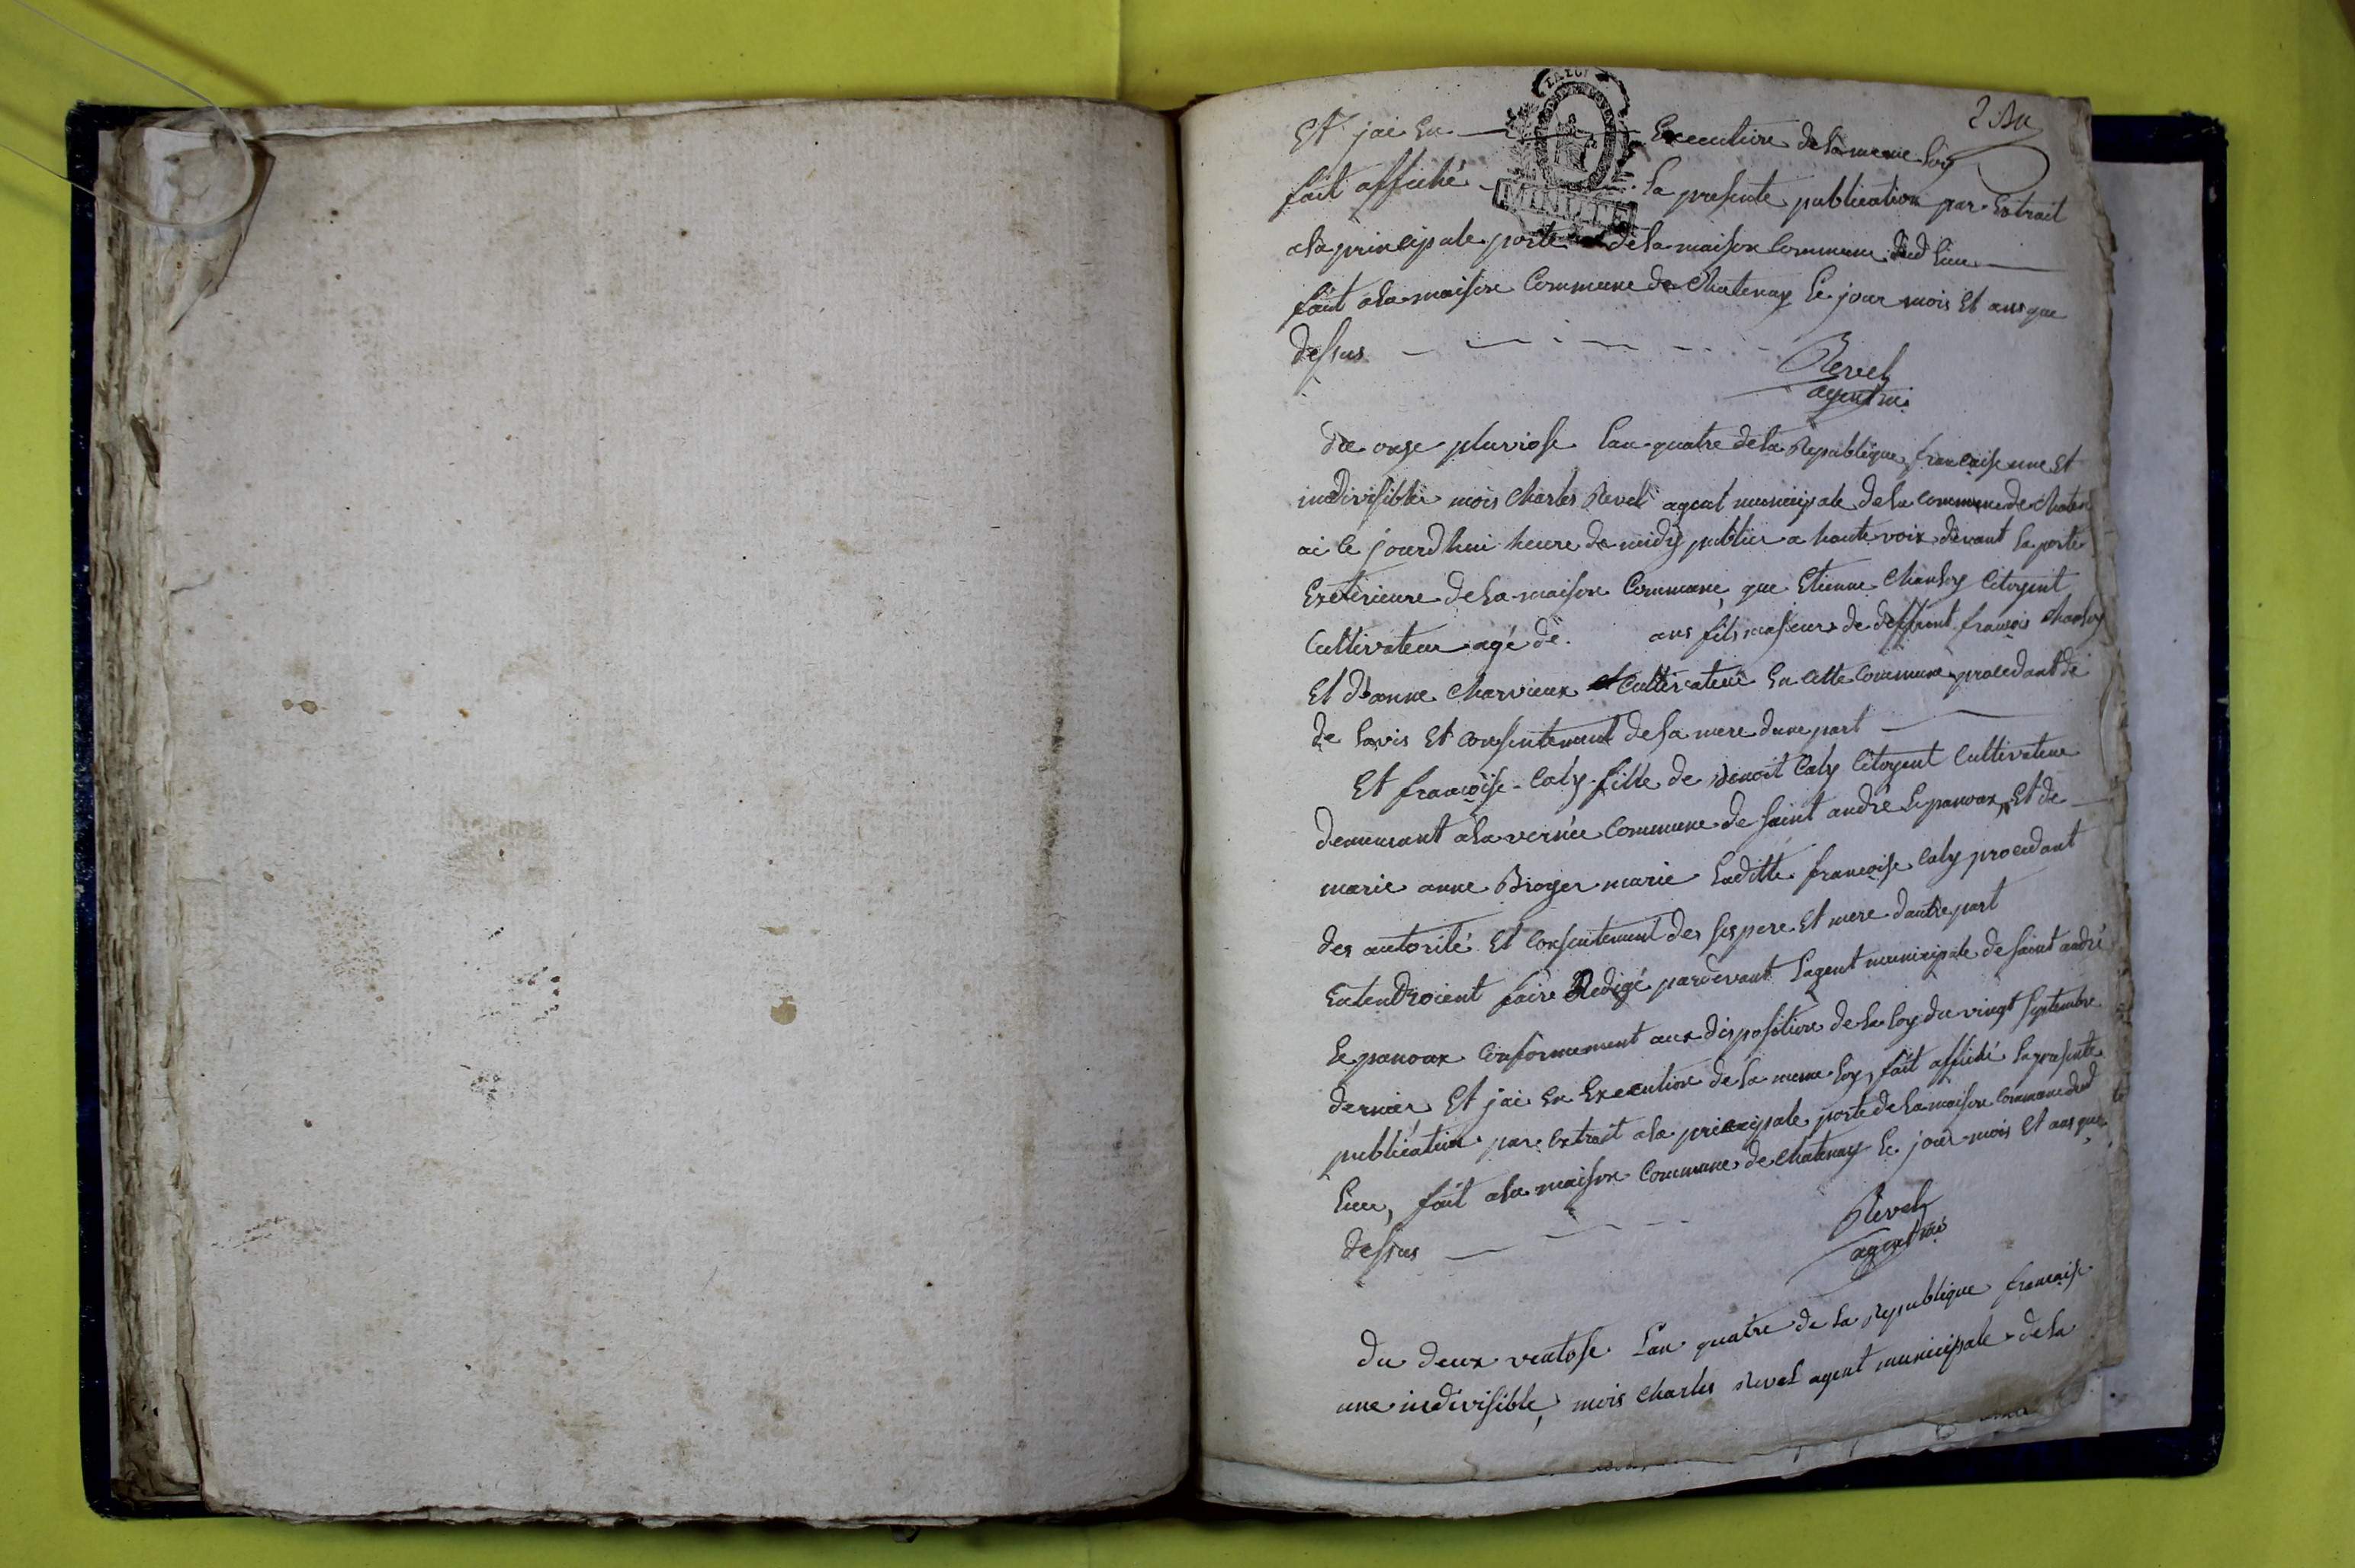 Et jai En Execution de la meme Loy
fait affiché la presente publication par Extrait
ala principale porte de la maison Commune dud Lieu
fait ala maison Commune de Chatenay Le jour mois Et ans que
dessus
Revel
agent m.
Du onze pluviose Lan quatre de la Republique francaise une Et
indivisible mois Charles Revel agent municipale de la Commune de Chaten
ai Ce jourdhui heure de midy publier a haute voix devant La porte
Exterieure de La maison Commune que Etienne Citoyent
Cultivateur agé de ans fils majeure de deffunt francois
Et deanne Charvieux Cultivateur En Cette Commune procedant de
de Lavis Et Consentement de Sa mere dune part
Et francoise Caly fille de Benoit Caly Citoyent Cultivateur
demeurant ala vernée Commune de Saint andré Lepanoux Et de
marie anne Broyer marie Laditte francoise Caly procedant
des autorité Et Consentement des Ses pere Et mere dautre part
Entendroient faire Redigé pardevant Lagent municipale de Saint andré
Le panoux Conformement aux dispositions de La Loy du vingt Septembre
dernier, Et jai En Execution de La meme Loy, fait affiché La presente
publication par Extrait ala principale porte de La maison Commune dud
Lieu, fait ala maison Commune de Chatenay Le jour mois Et ans que
dessus
Revel
agent m.
Du deux ventose Lan quatre de La Republique francaise
une indivisible, mois Charles Revel agent municipale de La